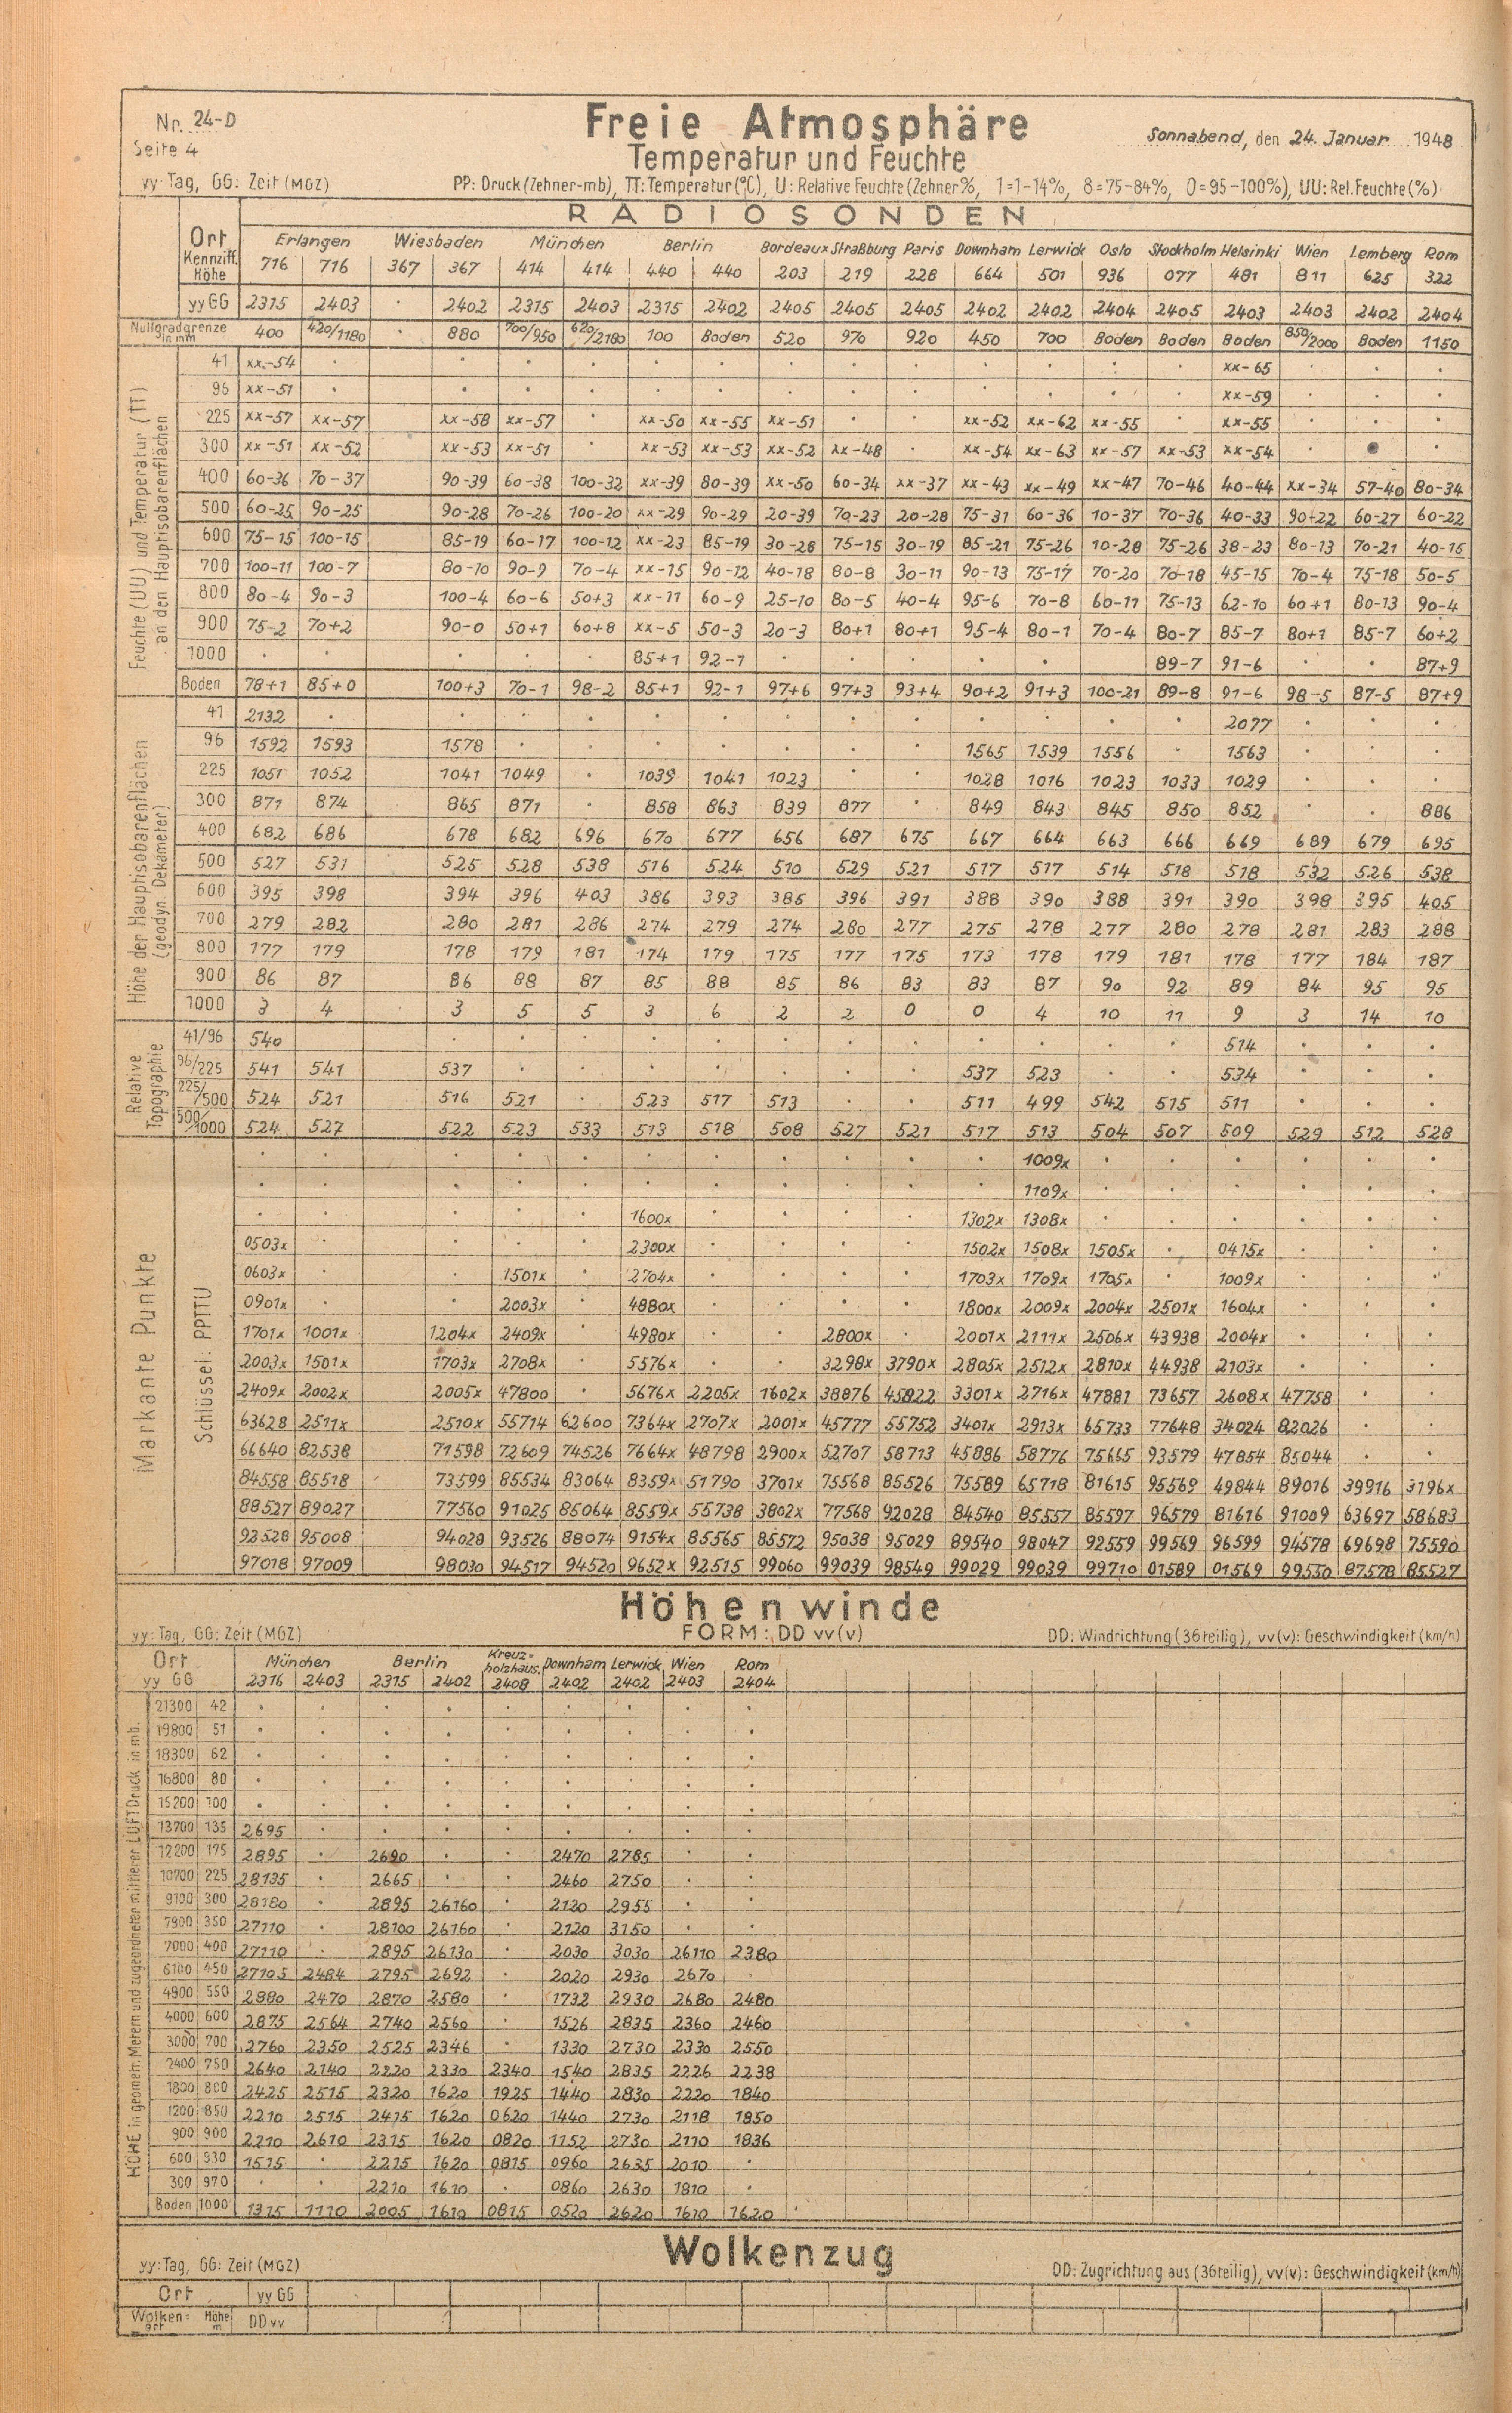 Nr. 24-D
Freie Atmosphäre
Sonnabend, den 24. Januar 1948
Seite 4
Temperatur und Feuchte
yy: Tag, GG: Zeit (MGZ) PP: Druck (Zehner-mb), TT: Temperatur (°C), U: Relative Feuchte (Zehner %, 1=1-14%, 8=75-84%, 0=95-100%), UU: Rel. Feuchte (%)
RADIOSONDEN
Ort Erlangen Wiesbaden München Berlin Bordeaux Straßburg Paris Downham Lerwick Oslo Stockholm Helsinki Wien Lemberg Rom
Kennziff. Höhe 716 716 367 367 414 414 440 440 203 219 228 664 501 936 077 481 811 625 322
yy GG 2315 2403 . 2402 2315 2403 2315 2402 2405 2405 2405 2402 2402 2404 2405 2403 2403 2402 2404
Nullgradgrenze in mm 400 420/1180 . 880 700/950 620/2180 100 Boden 520 970 920 450 700 Boden Boden Boden 850/2000 Boden 1150
Feuchte (UU) und Temperatur (TT) an den Hauptisobarenflächen
41 xx-54 xx-65
96 xx-51 xx-59
225 xx-57 xx-57 xx-58 xx-57 . xx-50 xx-55 xx-51 xx-52 xx-62 xx-55 . xx-55
300 xx-51 xx-52 xx-53 xx-51 . xx-53 xx-53 xx-52 xx-48 . xx-54 xx-63 xx-57 xx-53 xx-54
400 60-36 70-37 90-39 60-38 100-32 xx-39 80-39 xx-50 60-34 xx-37 xx-43 xx-49 xx-47 70-46 40-44 xx-34 57-40 80-34
500 60-25 90-25 90-28 70-26 100-20 xx-29 90-29 20-39 70-23 20-28 75-31 60-36 10-37 70-36 40-33 90-22 60-27 60-22
600 75-15 100-15 85-19 60-17 100-12 xx-23 85-19 30-28 75-15 30-19 85-21 75-26 10-28 75-26 38-23 80-13 70-21 40-15
700 100-11 100-7 80-10 90-9 70-4 xx-15 90-12 40-18 80-8 30-11 90-13 75-17 70-20 70-18 45-15 70-4 75-18 50-5
800 80-4 90-3 100-4 60-6 50+3 xx-11 60-9 25-10 80-5 40-4 95-6 70-8 60-11 75-13 62-10 60+1 80-13 90-4
900 75-2 70+2 90-0 50+1 60+8 xx-5 50-3 20-3 80+1 80+1 95-4 80-1 70-4 80-7 85-7 80+1 85-7 60+2
1000 85+1 92-1 89-7 91-6 87+9
Boden 78+1 85+0 100+3 70-1 98-2 85+1 92-1 97+6 97+3 93+4 90+2 91+3 100-21 89-8 91-6 98-5 87-5 87+9
Höhe der Hauptisobarenflächen (geodyn. Dekameter)
41 2132 2077
96 1592 1593 1578 1565 1539 1556 . 1563
225 1051 1052 1041 1049 . 1039 1041 1023 . . 1028 1016 1023 1033 1029
300 871 874 865 871 . 858 863 839 877 . 849 843 845 850 852 . . 886
400 682 686 678 682 696 670 677 656 687 675 667 664 663 666 669 689 679 695
500 527 531 525 528 538 516 524 510 529 521 517 517 514 518 518 532 526 538
600 395 398 394 396 403 386 393 385 396 391 388 390 388 391 390 398 395 405
700 279 282 280 281 286 274 279 274 280 277 275 278 277 280 278 281 283 288
800 177 179 178 179 181 174 179 175 177 175 173 178 179 181 178 177 184 187
900 86 87 86 88 87 85 88 85 86 83 83 87 90 92 89 84 95 95
1000 3 4 3 5 5 3 6 2 2 0 0 4 10 11 9 3 14 10
Relative Topographie
41/96 540 514
96/225 541 541 537 537 523 . . 534
225/500 524 521 516 521 . 523 517 513 . . 511 499 542 515 511
500/1000 524 527 522 523 533 513 518 508 527 521 517 513 504 507 509 529 512 528
Markante Punkte
Schlüssel: PPTTU
1009x
1109x
1600x 1302x 1308x
0503x 2300x 1502x 1508x 1505x . 0415x
0603x 1501x . 2704x 1703x 1709x 1705x . 1009x
0901x 2003x 4880x 1800x 2009x 2004x 2501x 1604x
1701x 1001x 1204x 2409x . 4980x . . 2800x . 2001x 2111x 2506x 43938 2004x
2003x 1501x 1703x 2708x . 5576x . . 3298x 3790x 2805x 2512x 2810x 44938 2103x
2409x 2002x 2005x 47800 . 5676x 2205x 1602x 38876 45822 3301x 2716x 47881 73657 2608x 47758
63628 2511x 2510x 55714 62600 7364x 2707x 2001x 45777 55752 3401x 2913x 65733 77648 34024 82026
66640 82538 71598 72609 74526 7664x 48798 2900x 52707 58713 45886 58776 75665 93579 47854 85044
84558 85518 73599 85534 83064 8359x 51790 3701x 75568 85526 75589 65718 81615 95569 49844 89016 39916 3196x
88527 89027 77560 91025 85064 8559x 55738 3802x 77568 92028 84540 85557 85597 96579 81616 91009 63697 58683
92528 95008 94028 93526 88074 9154x 85565 85572 95038 95029 89540 98047 92559 99569 96599 94578 69698 75590
97018 97009 98030 94517 94520 9652x 92515 99060 99039 98549 99029 99039 99710 01589 01569 99530 87578 85527
Höhenwinde
yy: Tag, GG: Zeit (MGZ) FORM: DD vv(v) DD: Windrichtung (36teilig), vv(v): Geschwindigkeit (km/h)
Ort München Berlin Kreuz=holzhaus. Downham Lerwick Wien Rom
yy GG 2316 2403 2315 2402 2408 2402 2402 2403 2404
HÖHE in geometr. Metern und zugeordneter mittlerer LUFTDruck in mb.
21300 42
19800 51
18300 62
16800 80
15200 100
13700 135 2695
12200 175 2895 . 2690 . . 2470 2785
10700 225 28135 . 2665 . . 2460 2750
9100 300 28180 . 2895 26160 . 2120 2955
7900 350 27110 . 28100 26160 . 2120 3150
7000 400 27110 . 2895 26130 . 2030 3030 26110 2380
6100 450 27105 2484 2795 2692 . 2020 2930 2670 .
4900 550 2880 2470 2870 2580 . 1732 2930 2680 2480
4000 600 2875 2564 2740 2560 . 1526 2835 2360 2460
3000 700 2760 2350 2525 2346 . 1330 2730 2330 2550
2400 750 2640 2140 2220 2330 2340 1540 2835 2226 2238
1800 800 2425 2515 2320 1620 1925 1440 2830 2220 1840
1200 850 2210 2515 2415 1620 0620 1440 2730 2118 1850
900 900 2210 2610 2315 1620 0820 1152 2730 2110 1836
600 930 1515 . 2225 1620 0815 0960 2635 2010 .
300 970 . . 2210 1610 . 0860 2630 1810 .
Boden 1000 1315 1110 2005 1610 0815 0520 2620 1610 1620
Wolkenzug
yy: Tag, GG: Zeit (MGZ) DD: Zugrichtung aus (36teilig), vv(v): Geschwindigkeit (km/h)
Ort yy GG
Wolken=art Höhe m DD vv